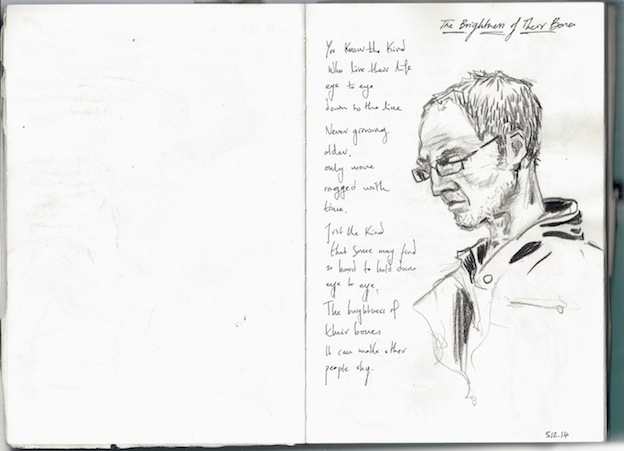 The Brightness of Their Bones
You Know the Kind
Who live their life
eye to eye
down to the line
Never growing
older,
only more
ragged with
time.
Just the Kind
that some may find
so hard to hold down
eye to eye,
The brightness of
their bones
It can make other
people shy.
5.12.14